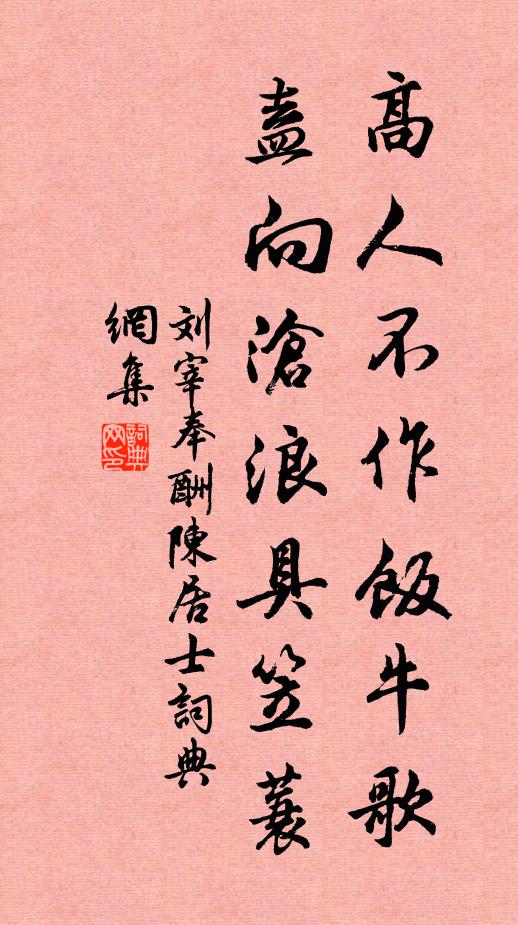 高人不作飯牛歌
盍向滄浪具笠蓑
刘宰奉酬陳居士詞典
網集
詞典
网印